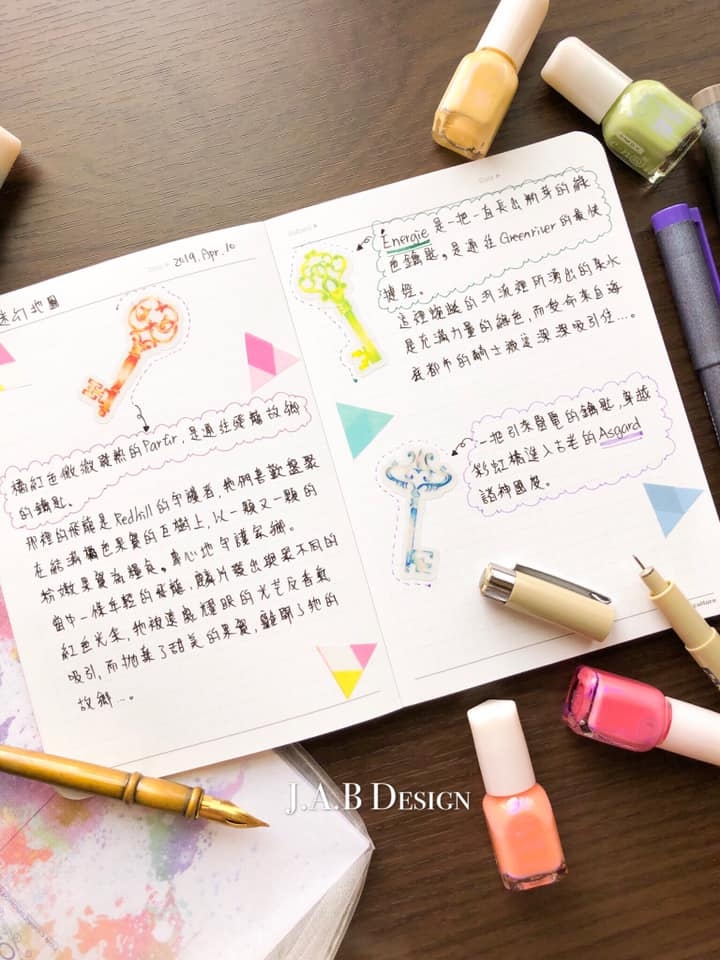 迷幻地圖
2019. Apr. 10
橘紅色微微發熱的Partir,是通往飛龍故鄉
的鑰匙。
那裡的飛龍是Redhill的守護者,他們喜歡盤聚
在結滿橘色果實的巨樹上,以一顆又一顆的
粉嫩果實為糧食。專心地守護家鄉。
當中一條年輕的飛龍,鱗片發出與眾不同的
紅色光,他被遠處耀眼的光芒
吸引,而拋棄了甜美的果實,離開了他的
故鄉…。
Date
Énergie是一把一直長出新芽的綠
色鑰匙。是通往Greenriver的最快
捷徑。
這裡蜿蜒的河流裡所湧出的泉水
是充滿力量的綠色,而使命來自海
底都市的騎士被這深深吸引住…。
一把引來閃電的鑰匙,穿越
彩虹橋進入古老的Asgard
諸神國度。
J.A.B DESIGN